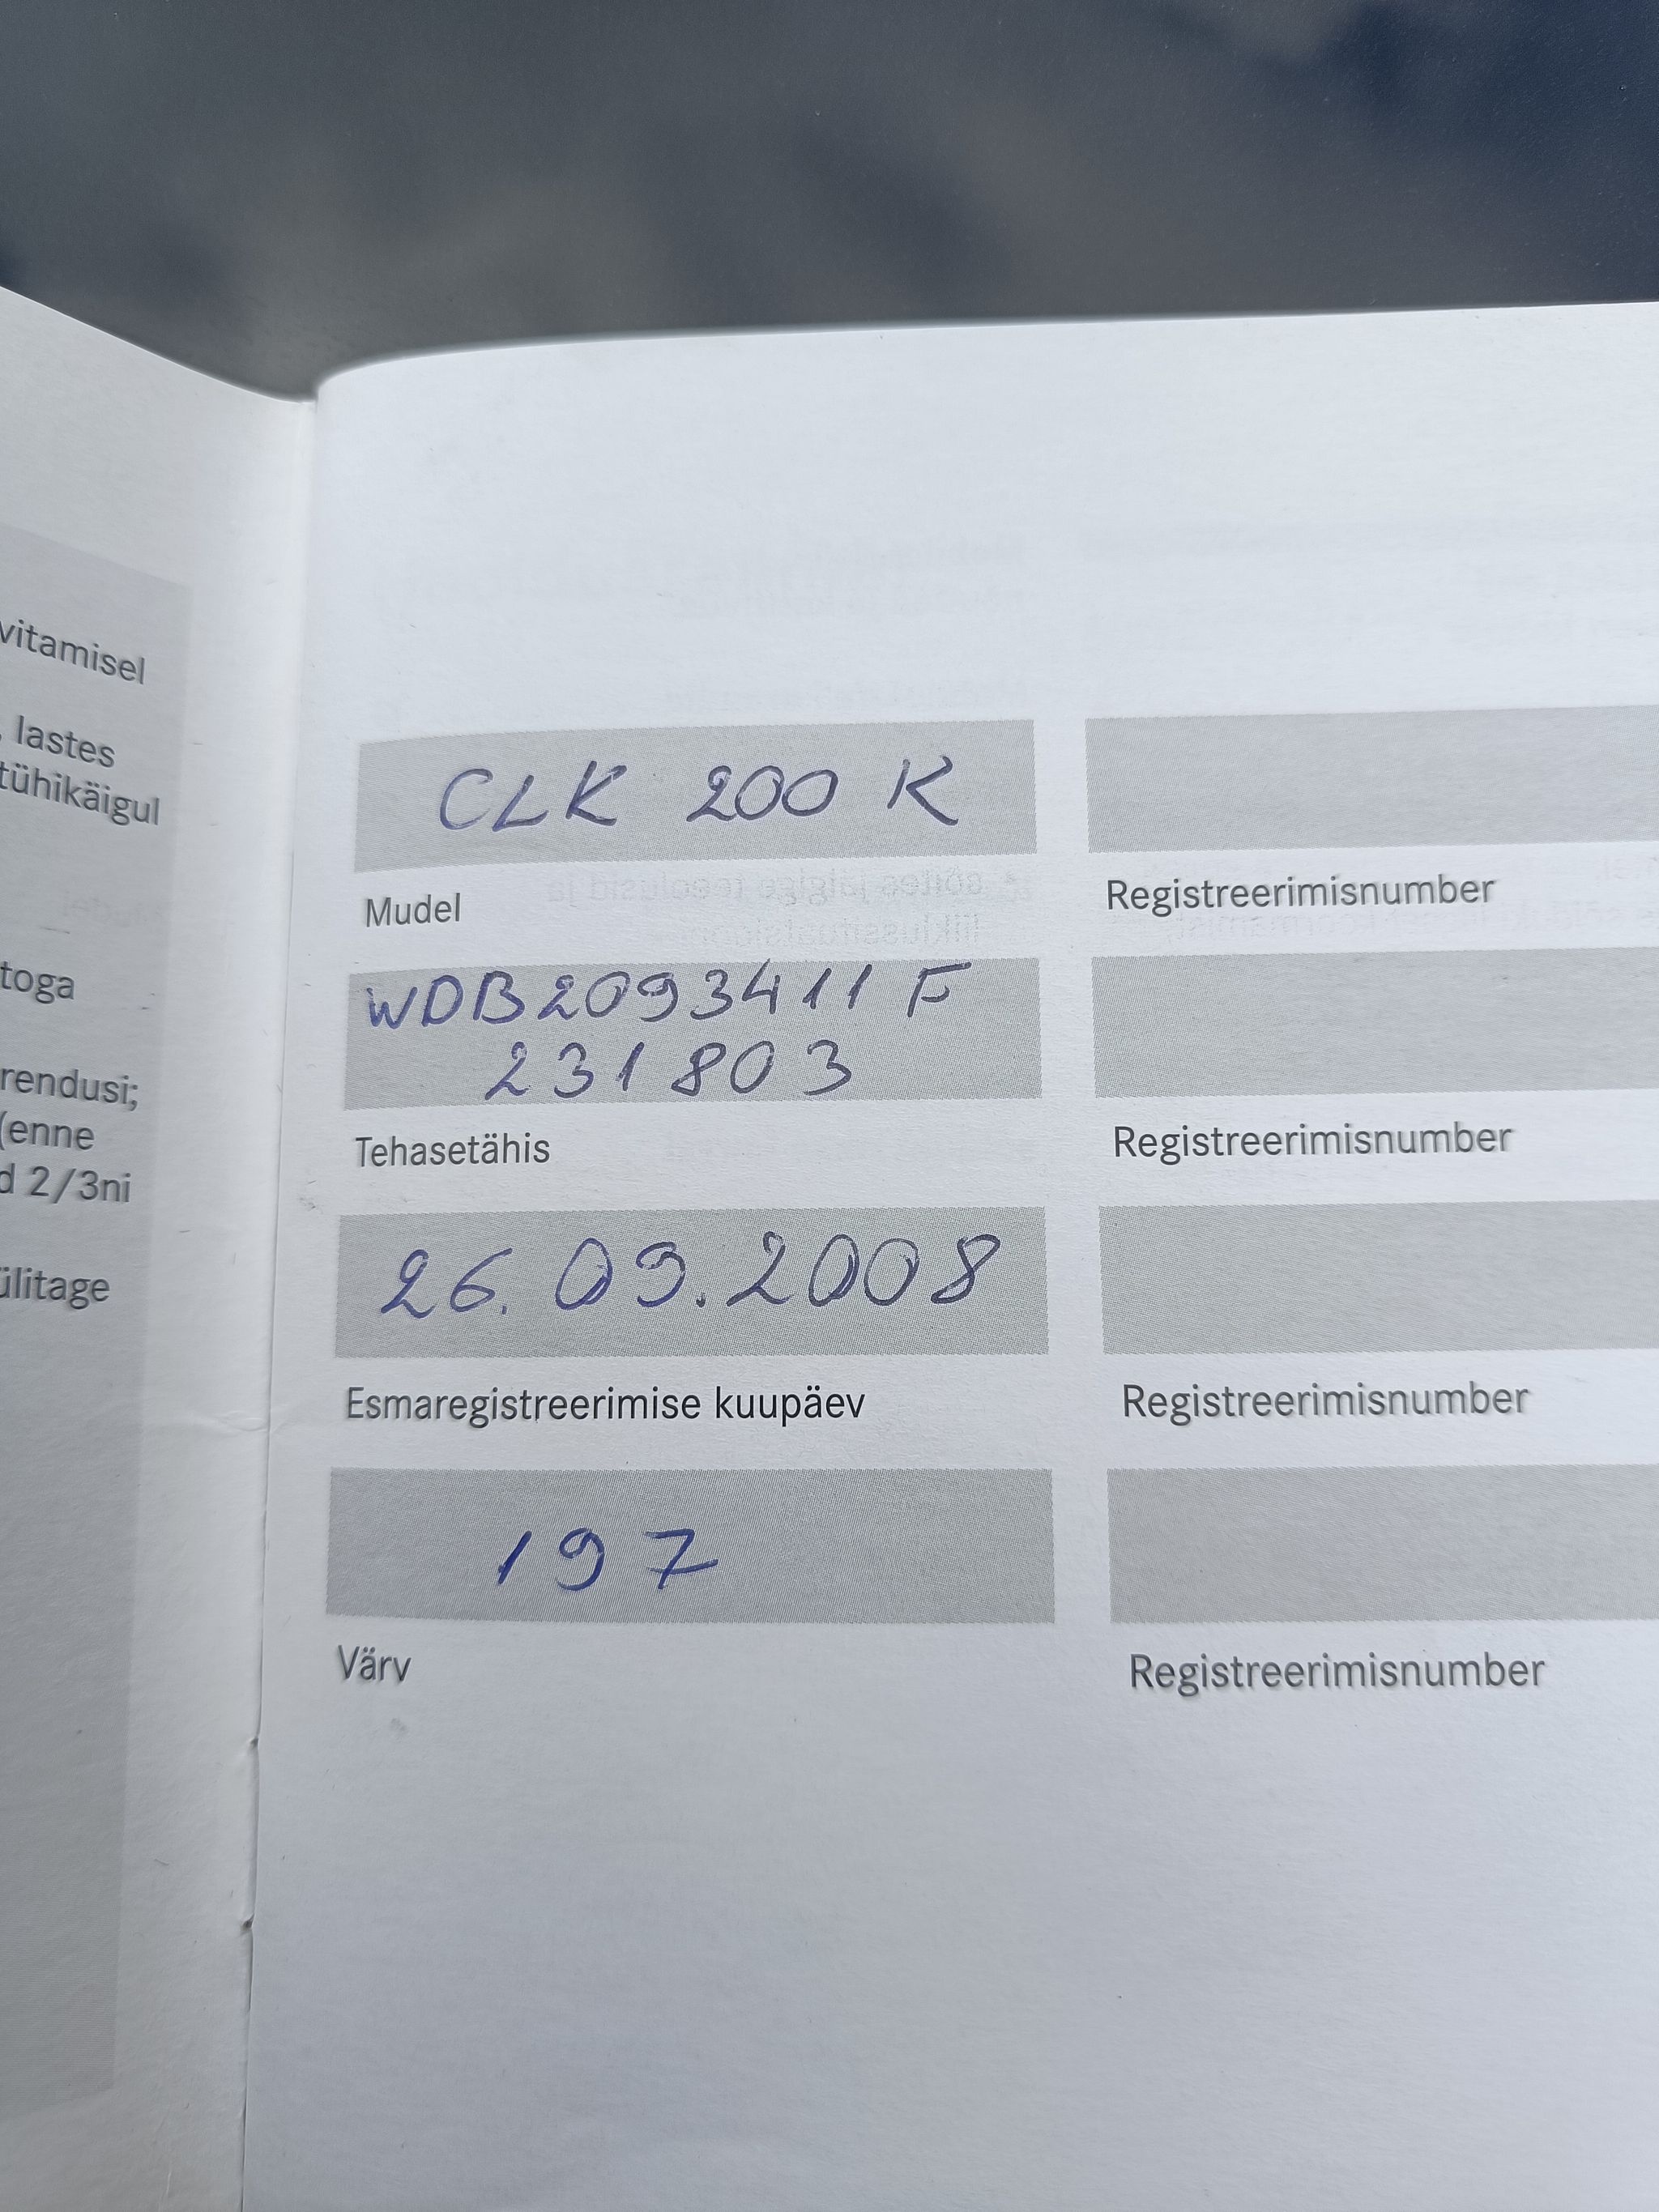 vitamisel
, lastes
tühikäigul
toga
rendusi;
(enne
d 2/3ni
ülitage
CLK 200 K
Mudel
Registreerimisnumber
WDB2093411 F
231803
Tehasetähis
Registreerimisnumber
26.09.2008
Esmaregistreerimise kuupäev
Registreerimisnumber
197
Värv
Registreerimisnumber